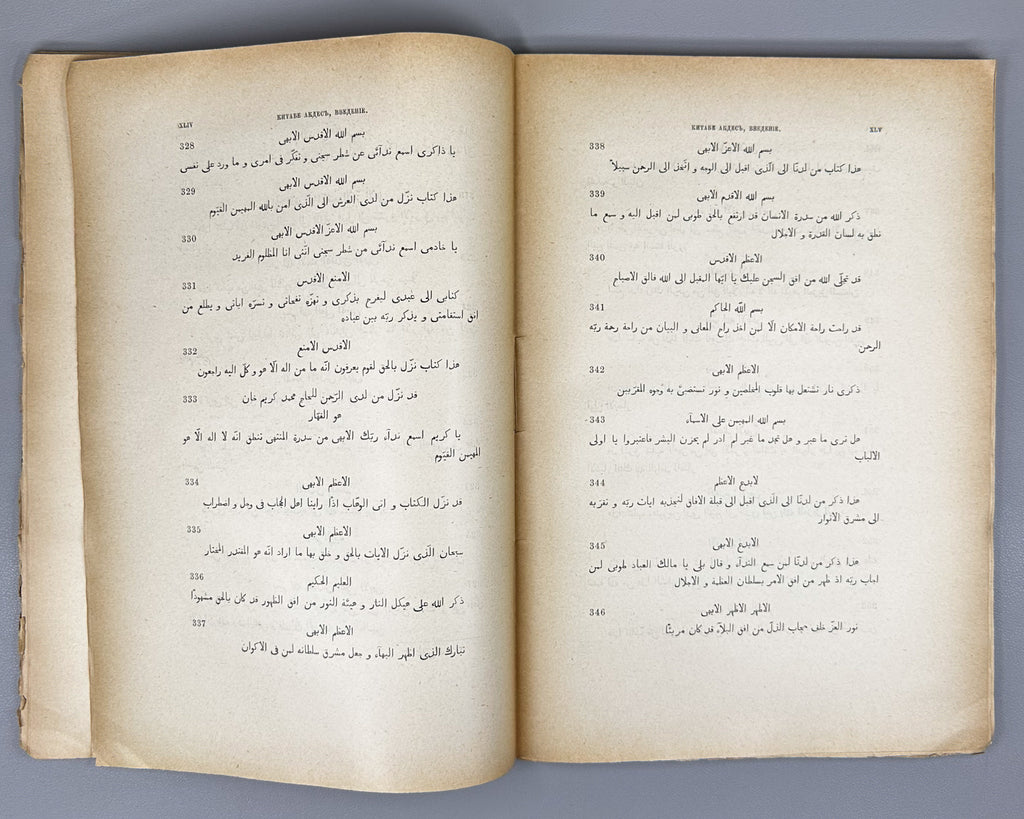 XLIV
КИТАБЕ АКДЕСЪ, ВВЕДЕНІЕ.
328
بسم الله الاقدس الابهی
یا ذاکری اسمع ندآئی عن شطر سجنی و تفکّر فی امری و ما ورد علی نفسی
329
بسم الله الاقدس الابهی
هذا کتاب نزّل من لدی العرش الی الّذی امن بالله المهیمن القیّوم
330
بسم الله الاعزّ الاقدس الابهی
یا خادمی اسمع ندآئی من شطر سجنی انّنی انا المظلوم الفرید
331
الامنع الاقدس
کتابی الی عبدی لیفرح بذکری و تهزّه نغماتی و تسرّه ایاتی و یطلع من
افق استقامتی و یذکر ربّه بین عباده
332
الاقدس الامنع
هذا کتاب نزّل بالحق لقوم یعرفون انّه ما من اله الّا هو و کلّ الیه راجعون
333
قد نزّل من لدی الرّحمن للحاج محمد کریم خان
هو القهّار
یا کریم اسمع ندآء ربّك الابهی من سدرة المنتهی تنطق انّه لا اله الّا هو
المهیمن القیّوم
334
الاعظم الابهی
قد نزّل الکتاب و اتی الوهّاب اذًا راینا اهل الحجاب فی وجل و اضطراب
335
الاعظم الابهی
سبحان الّذی نزّل الایات بالحق و خلق بها ما اراد انّه هو المقتدر المختار
336
العلیم الحکیم
ذکر الله علی هیکل النار و هیئة النور من افق الظهور قد کان بالحق مشهودًا
337
الاعظم الابهی
تبارك الّذی اظهر البهآء و جعل مشرق سلطانه لمن فی الاکوان
КИТАБЕ АКДЕСЪ, ВВЕДЕНІЕ.
XLV
338
بسم الله الاعزّ الابهی
هذا کتاب من لدنّا الی الّذی اقبل الی الوجه و اتّخذ الی الرحمن سبیلاً
339
بسم الله الاقدم الابهی
ذکر الله من سدرة الانسان قد ارتفع بالحق طوبی لمن اقبل الیه و سمع ما
نطق به لسان القدرة و الاجلال
340
الاعظم الاقدس
قد تجلّی الله من افق السجن علیك یا ایّها المقبل الی الله فالق الاصباح
341
بسم الله الحاکم
قد راحت راحة الامکان الّا لمن اخذ راح المعانی و البیان من راحة رحمة ربّه
الرحمن
342
الاعظم الابهی
ذکری نار تشتعل بها قلوب المخلصین و نور تستضئ به وجوه المقرّبین
343
بسم الله المهیمن علی الاسمآء
هل تری ما عبر و هل تجد ما غبر لم ادر لم یحزن البشر فاعتبروا یا اولی
الالباب
344
لابدع الاعظم
هذا ذکر من لدنّا الی الّذی اقبل الی قبلة الافاق لتجذبه ایات ربّه و تقرّبه
الی مشرق الانوار
345
الابدع الابهی
هذا ذکر من لدنّا لمن سمع الندآء و قال بلی یا مالك العباد طوبی لمن
اجاب ربّه اذ ظهر من افق الأمر بسلطان العظمة و الاجلال
346
الاظهر الاظهر الابهی
نور العزّ خلف حجاب الذلّ من افق البلآء قد کان مرئیّا